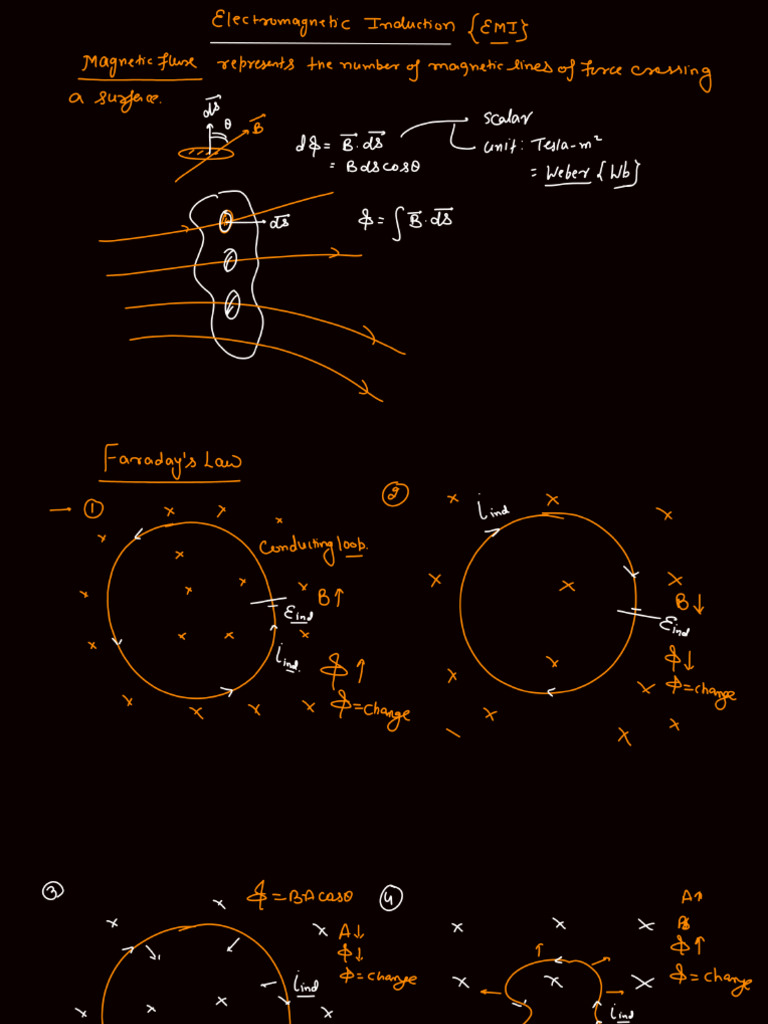 Electromagnetic Induction {EMI}
Magnetic flux represents the number of magnetic lines of force crossing
a surface.
ds
θ
B
dΦ = B.ds
= B ds cosθ
scalar
unit: Tesla-m²
= Weber {Wb}
ds
Φ = ∫ B.ds
Faraday's Law
→ 1
conducting loop.
B↑
εind
iind.
Φ↑
Φ = change
2
iind
B↓
εind
Φ↓
Φ = change
3
Φ = BA cosθ
A↓
Φ↓
Φ = change
iind
4
A↑
Φ↑
Φ = change
iind